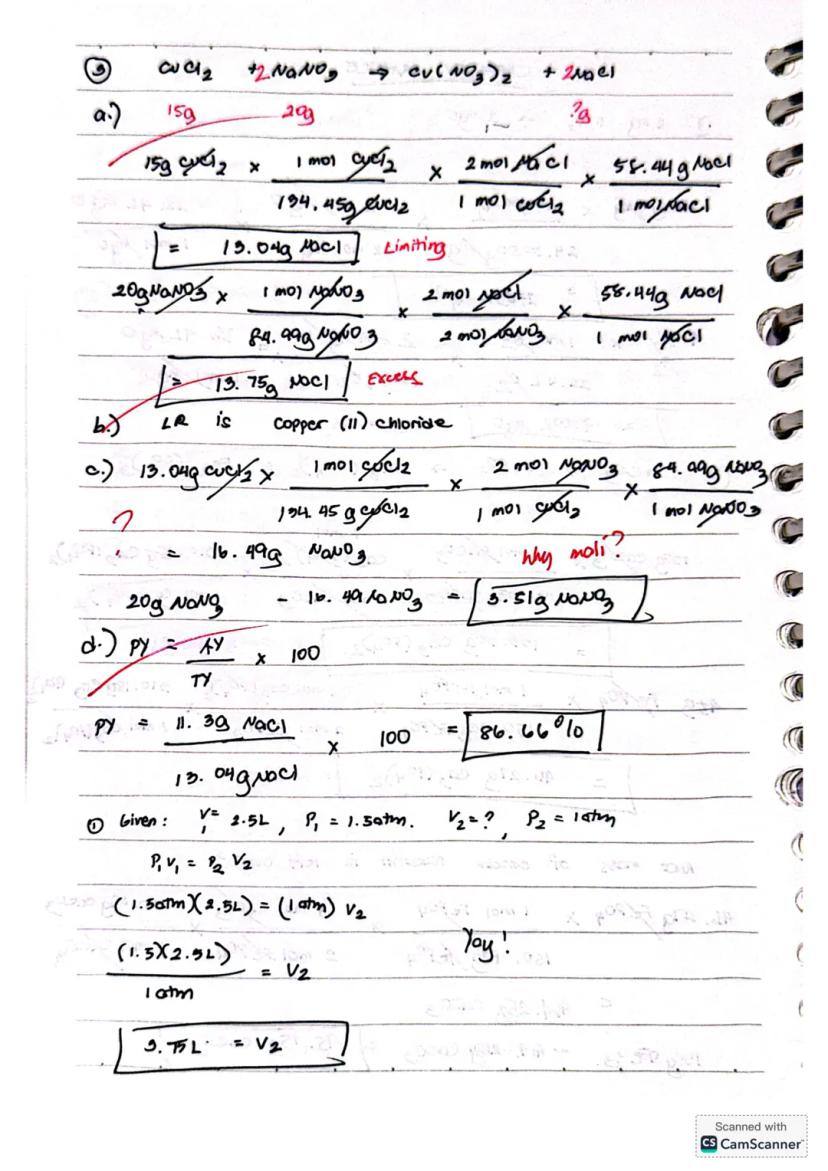 ③ CuCl2 + 2NaNO3 → Cu(NO3)2 + 2NaCl
a.) 15g 20g ?g
15g CuCl2 × 1 mol CuCl2 / 134.45g CuCl2 × 2 mol NaCl / 1 mol CuCl2 × 58.44 g NaCl / 1 mol NaCl
= 13.04g NaCl Limiting
20g NaNO3 × 1 mol NaNO3 / 84.99g NaNO3 × 2 mol NaCl / 2 mol NaNO3 × 58.44g NaCl / 1 mol NaCl
= 13.75g NaCl Excess
b.) LR is Copper (II) chloride
c.) 13.04g CuCl2 × 1 mol CuCl2 / 134.45 g CuCl2 × 2 mol NaNO3 / 1 mol CuCl2 × 84.99g NaNO3 / 1 mol NaNO3
?
= 16.49g NaNO3 Why moli?
20g NaNO3 - 16.49 NaNO3 = 3.51g NaNO3
d.) PY = AY / TY × 100
PY = 11.3g NaCl / 13.04g NaCl × 100 = 86.66%
① Given: V1 = 2.5L, P1 = 1.5atm. V2 = ?, P2 = 1atm
P1V1 = P2V2
(1.5atm)(2.5L) = (1atm) V2
Yay!
(1.5)(2.5L) / 1atm = V2
3.75L = V2
Scanned with
CS CamScanner